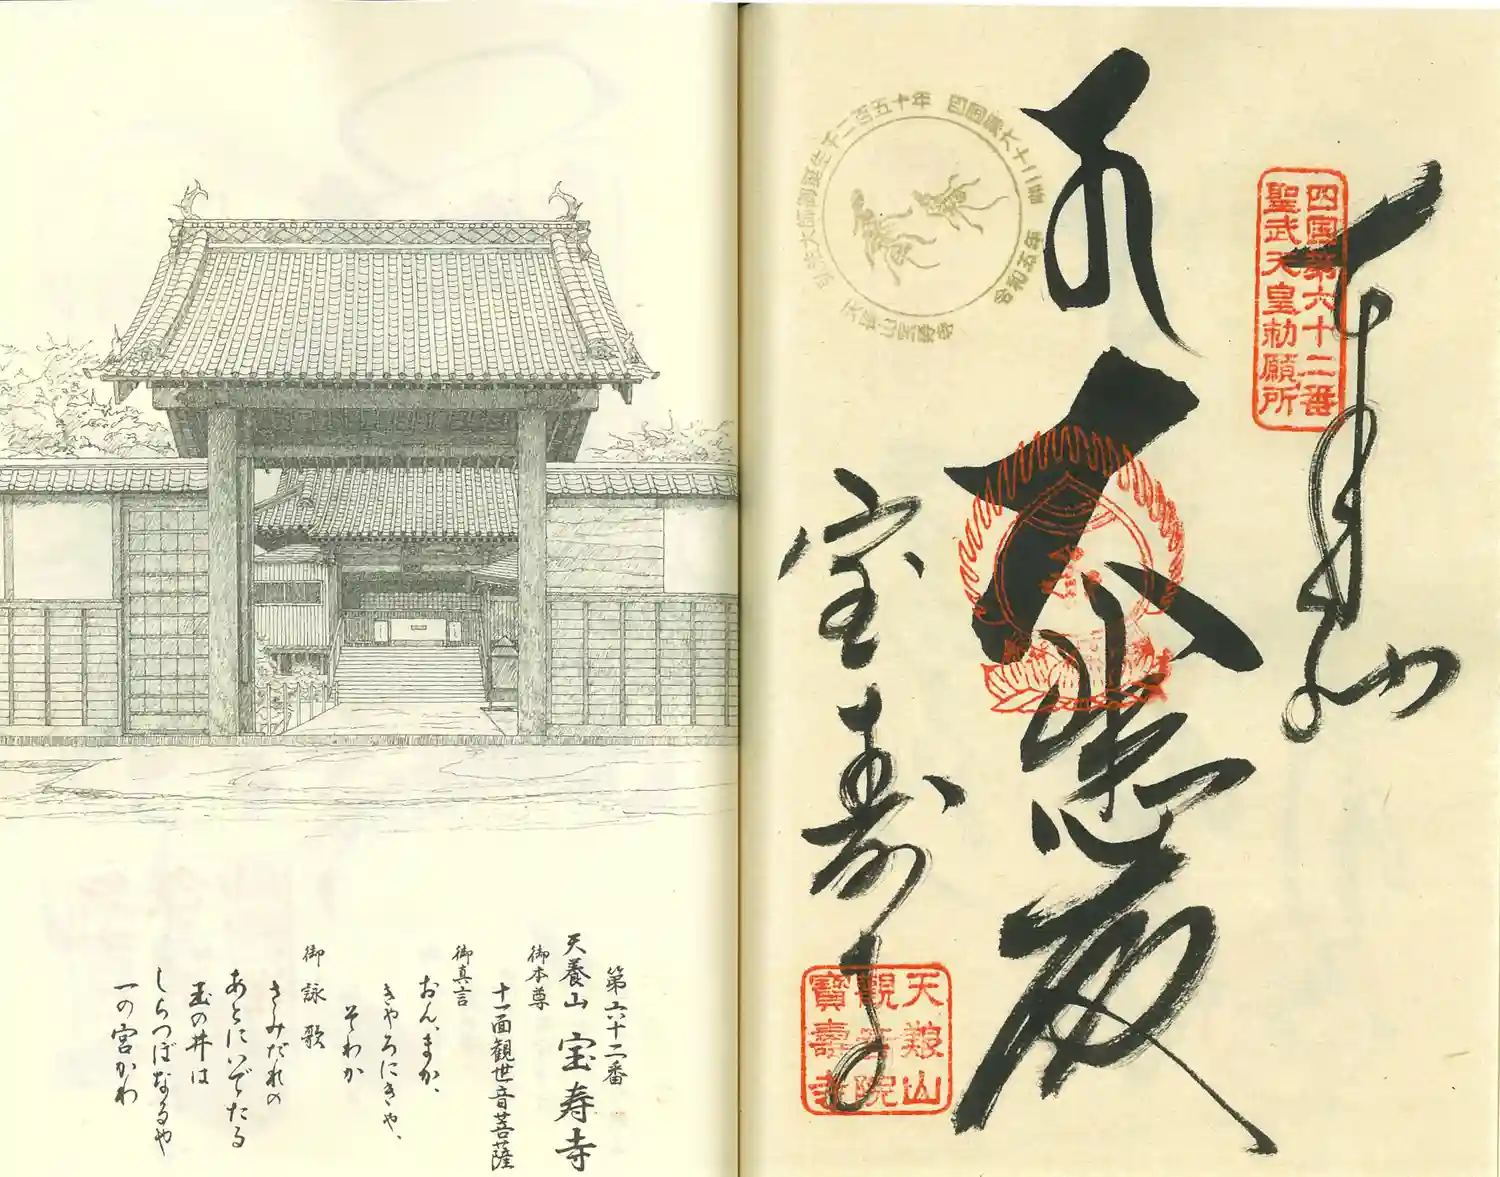 四国第六十二番
聖武天皇勅願所
天養山
大悲殿
宝寿寺
弘法大師御誕生千二百五十年
四国第六十二番
令和五年
天養山宝寿寺
天養山
觀音院
寶壽寺
第六十二番
天養山 宝寿寺
御本尊
十一面観世音菩薩
御真言
おん、まか、
きやろにきや、
そわか
御詠歌
さみだれの
あとにいでたる
玉の井は
しらつぼなるや
一の宮かわ